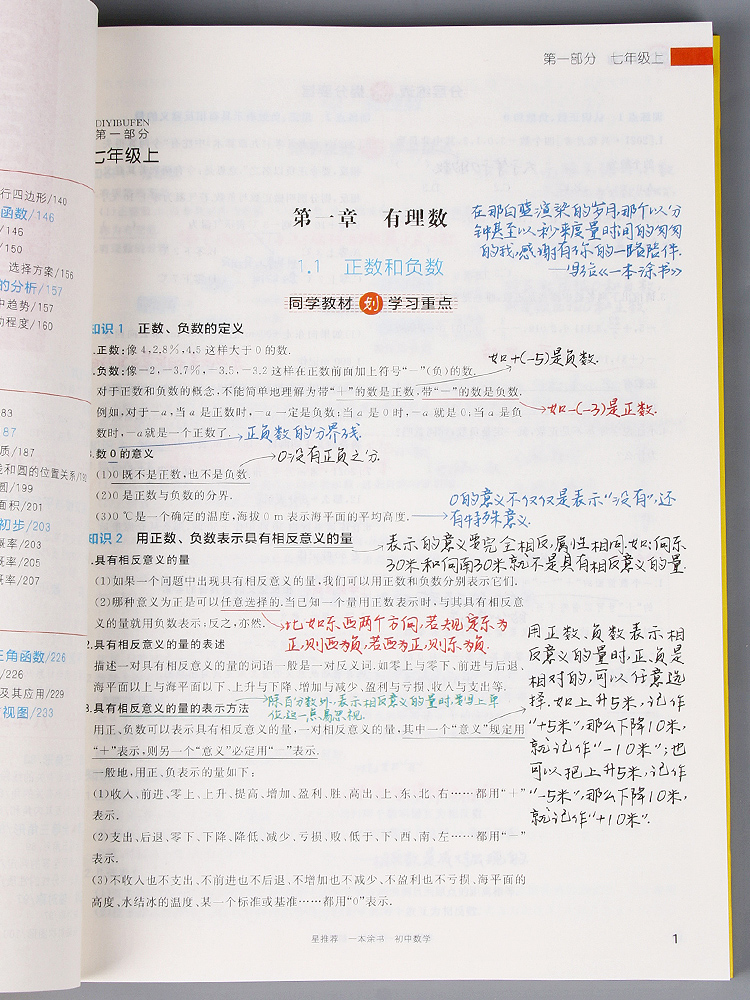 第一部分 七年级上
DIYIBUFEN
第一部分
七年级上
行四边形/140
函数/146
/146
/150
选择方案/156
的分析/157
中趋势/157
动程度/160
83
87
质/187
差和圆的位置关系/19
圆/199
面积/201
初步/203
概率/203
概率/205
概率/207
三角函数/226
/226
及其应用/229
视图/233
第一章 有理数
1.1 正数和负数
同学教材 划 学习重点
在那白蓝渲染的岁月,那个以分
钟甚至以秒来度量时间的匆匆
的我,感谢有你的一路陪伴.
知识1 正数、负数的定义
.正数:像4,2.8%,4.5这样大于0的数.
.负数:像-2,-3.7%,-3.5,-3.2这样在正数前面加上符号“-”(负)的数.
如+(-5)是负数.
对于正数和负数的概念,不能简单地理解为带“+”的数是正数,带“-”的数是负数.
例如,对于-a,当a是正数时,-a一定是负数;当a是0时,-a就是0;当a是负
数时,-a就是一个正数了.
如-(-3)是正数.
正负数的分界线.
.数0的意义
0没有正负之分.
(1)0既不是正数,也不是负数.
(2)0是正数与负数的分界.
(3)0℃是一个确定的温度,海拔0m表示海平面的平均高度.
0的意义不仅仅是表示“没有”,还
有特殊意义.
知识2 用正数、负数表示具有相反意义的量
表示的意义要完全相反,属性相同.如:向东
30米和向南30米就不是具有相反意义的量.
.具有相反意义的量
(1)如果一个问题中出现具有相反意义的量,我们可以用正数和负数分别表示它们.
(2)哪种意义为正是可以任意选择的.当已知一个量用正数表示时,与其具有相反意
义的量就用负数表示;反之,亦然.
比如东、西两个方向,若规定东为
正,则西为负,若西为正,则东为负.
2.具有相反意义的量的表述
描述一对具有相反意义的量的词语一般是一对反义词.如零上与零下、前进与后退、
海平面以上与海平面以下、上升与下降、增加与减少、盈利与亏损、收入与支出等.
3.具有相反意义的量的表示方法
除百分数外,表示相反意义的量时,要带上单
位,这一点易忽视.
用正、负数可以表示具有相反意义的量,一对相反意义的量,其中一个“意义”规定用
“+”表示,则另一个“意义”必定用“-”表示.
一般地,用正、负表示的量如下:
(1)收入、前进、零上、上升、提高、增加、盈利、胜、高出、上、东、北、右……都用“+”
表示.
(2)支出、后退、零下、下降、降低、减少、亏损、败、低于、下、西、南、左……都用“-”
表示.
(3)不收入也不支出、不前进也不后退、不增加也不减少、不盈利也不亏损、海平面的
高度、水结冰的温度、某一个标准或基准……都用“0”表示.
用正数、负数表示相
反意义的量时,正、负是
相对的,可以任意选
择.如上升5米,记作
“+5米”,那么下降10米,
就记作“-10米”;也
可以把上升5米,记作
“-5米”,那么下降10米,
就记作“+10米”.
星推荐 一本涂书 初中数学
1